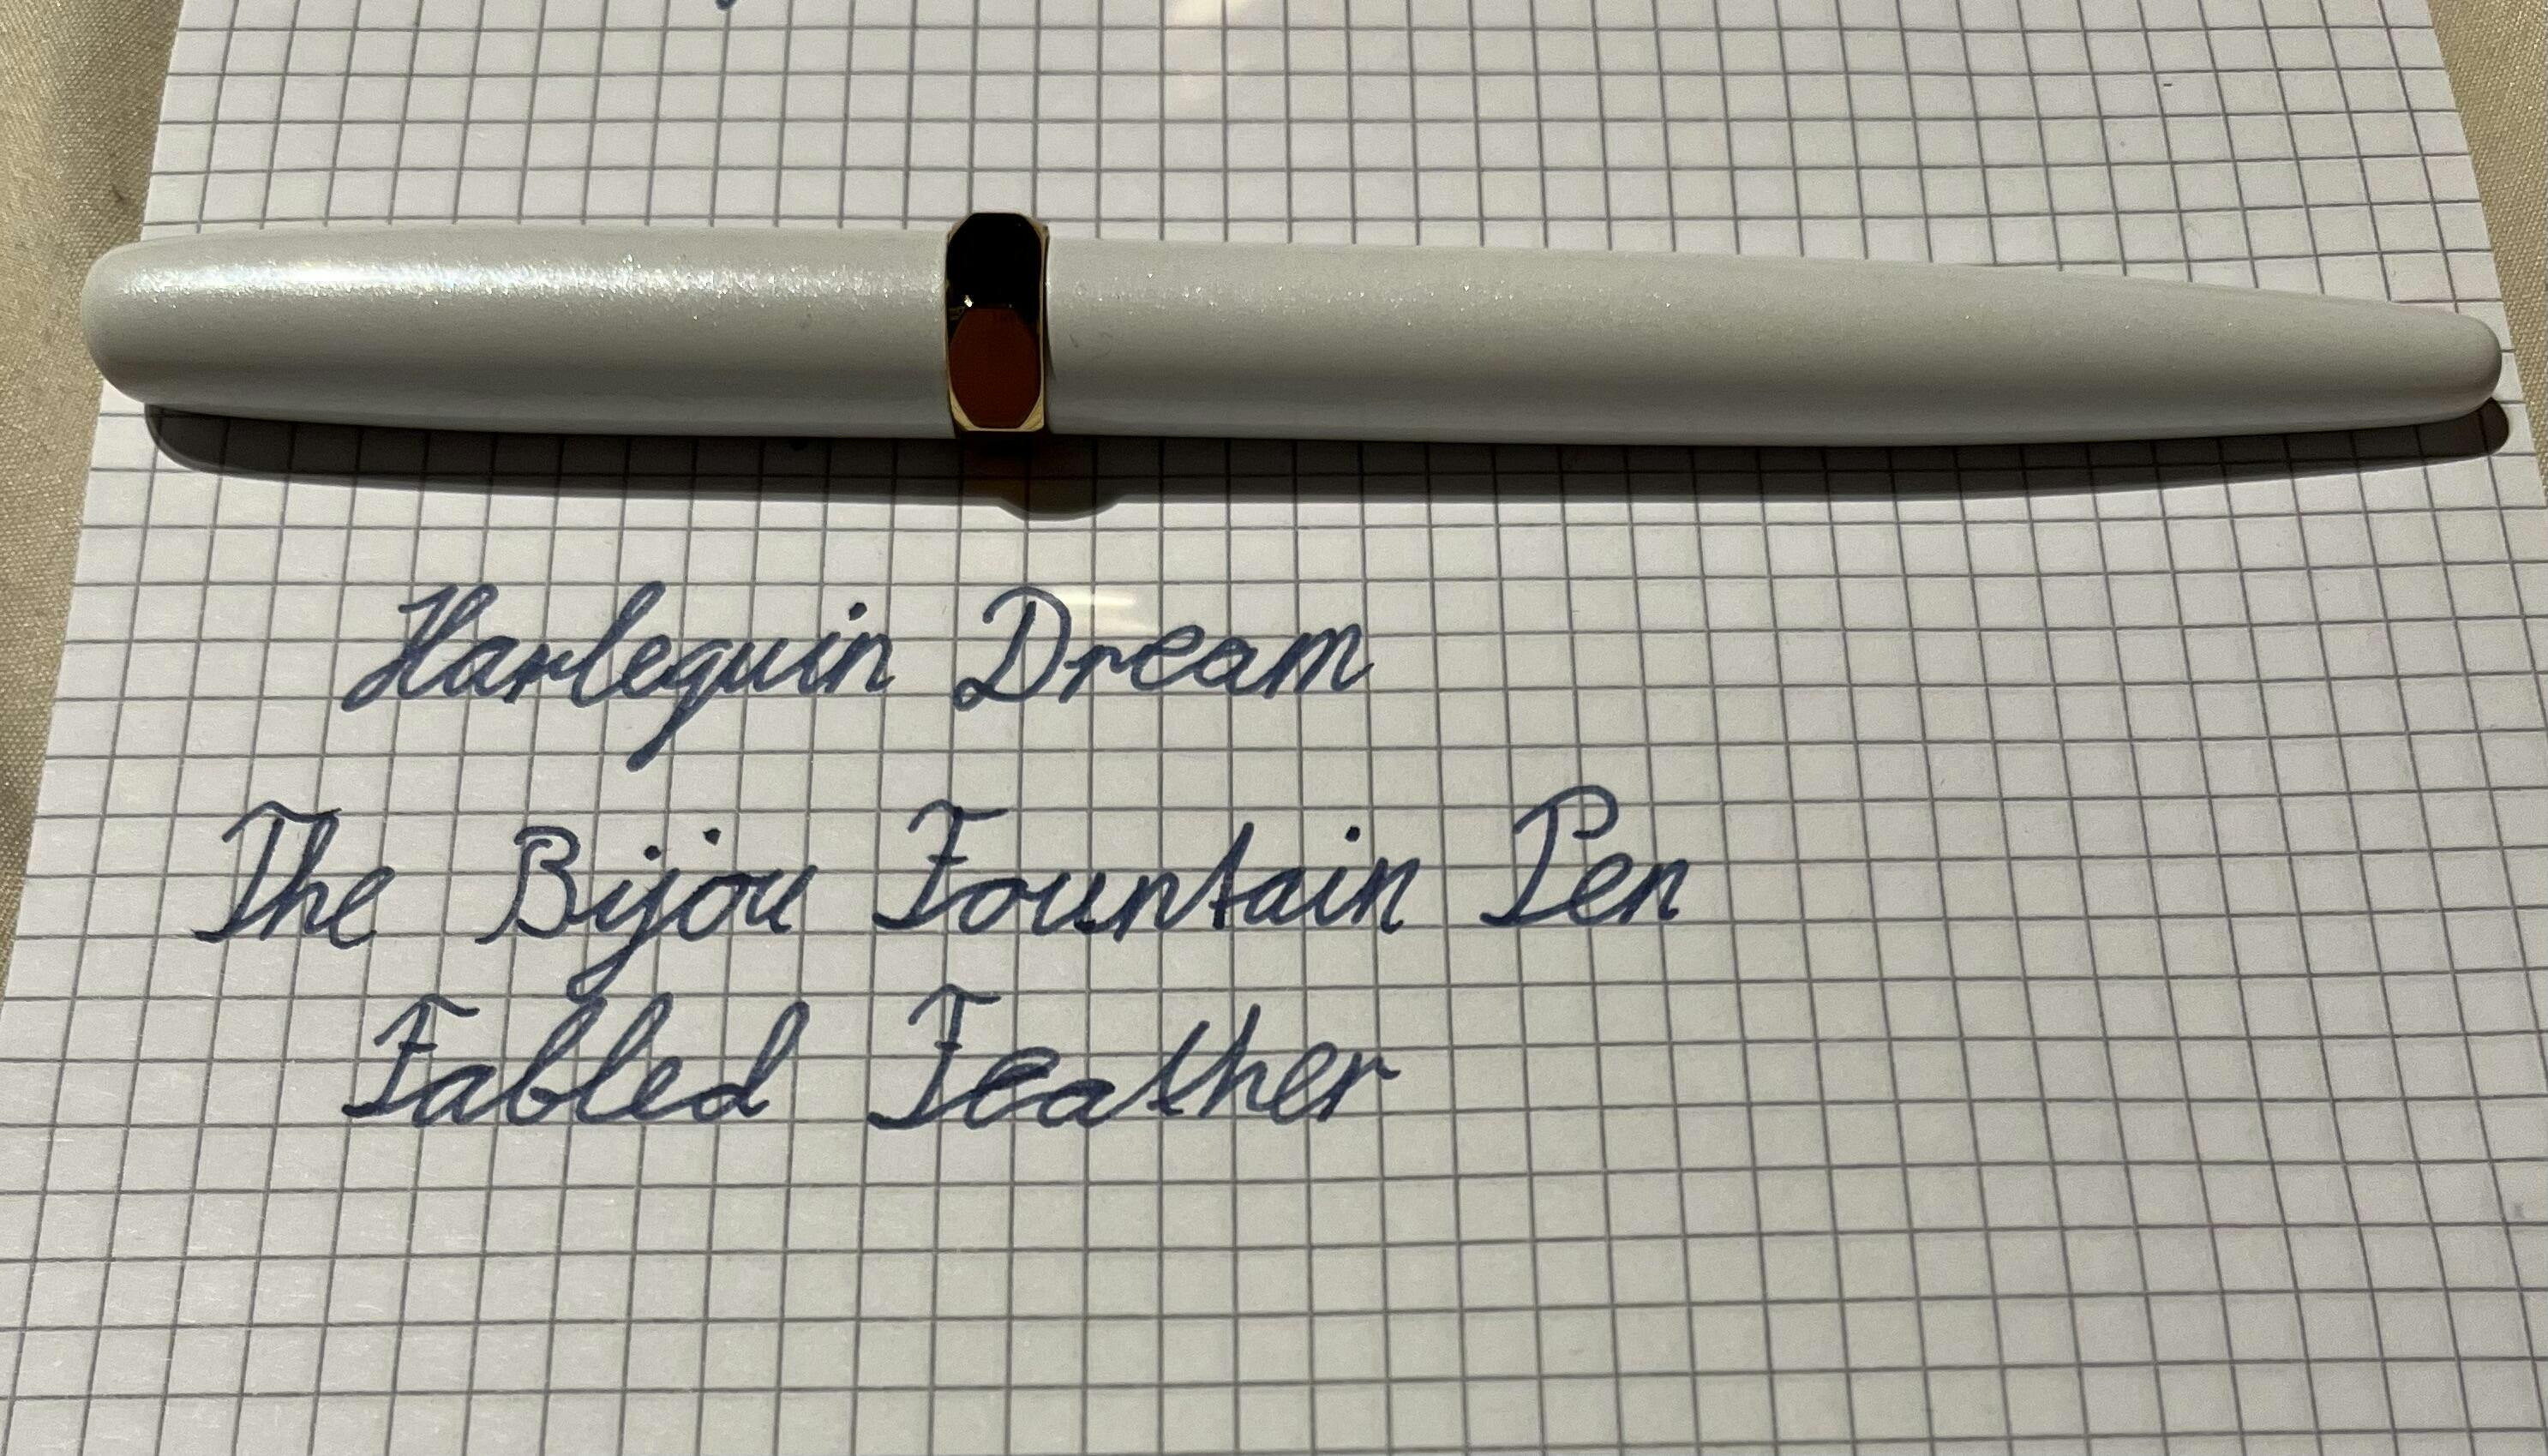 Harlequin Dream
The Bijou Fountain Pen
Fabled Feather